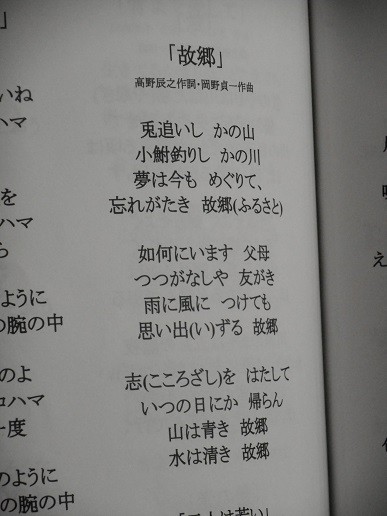 」
いね
ハマ
を
ハマ
ら
ように
の腕の中
のよ
コハマ
一度
のように
の腕の中
「故郷」
高野辰之作詞・岡野貞一作曲
兎追いし かの山
小鮒釣りし かの川
夢は今も めぐりて、
忘れがたき 故郷(ふるさと)
如何にいます 父母
つつがなしや 友がき
雨に風に つけても
思い出(い)ずる 故郷
志(こころざし)を はたして
いつの日にか 帰らん
山は青き 故郷
水は清き 故郷
え